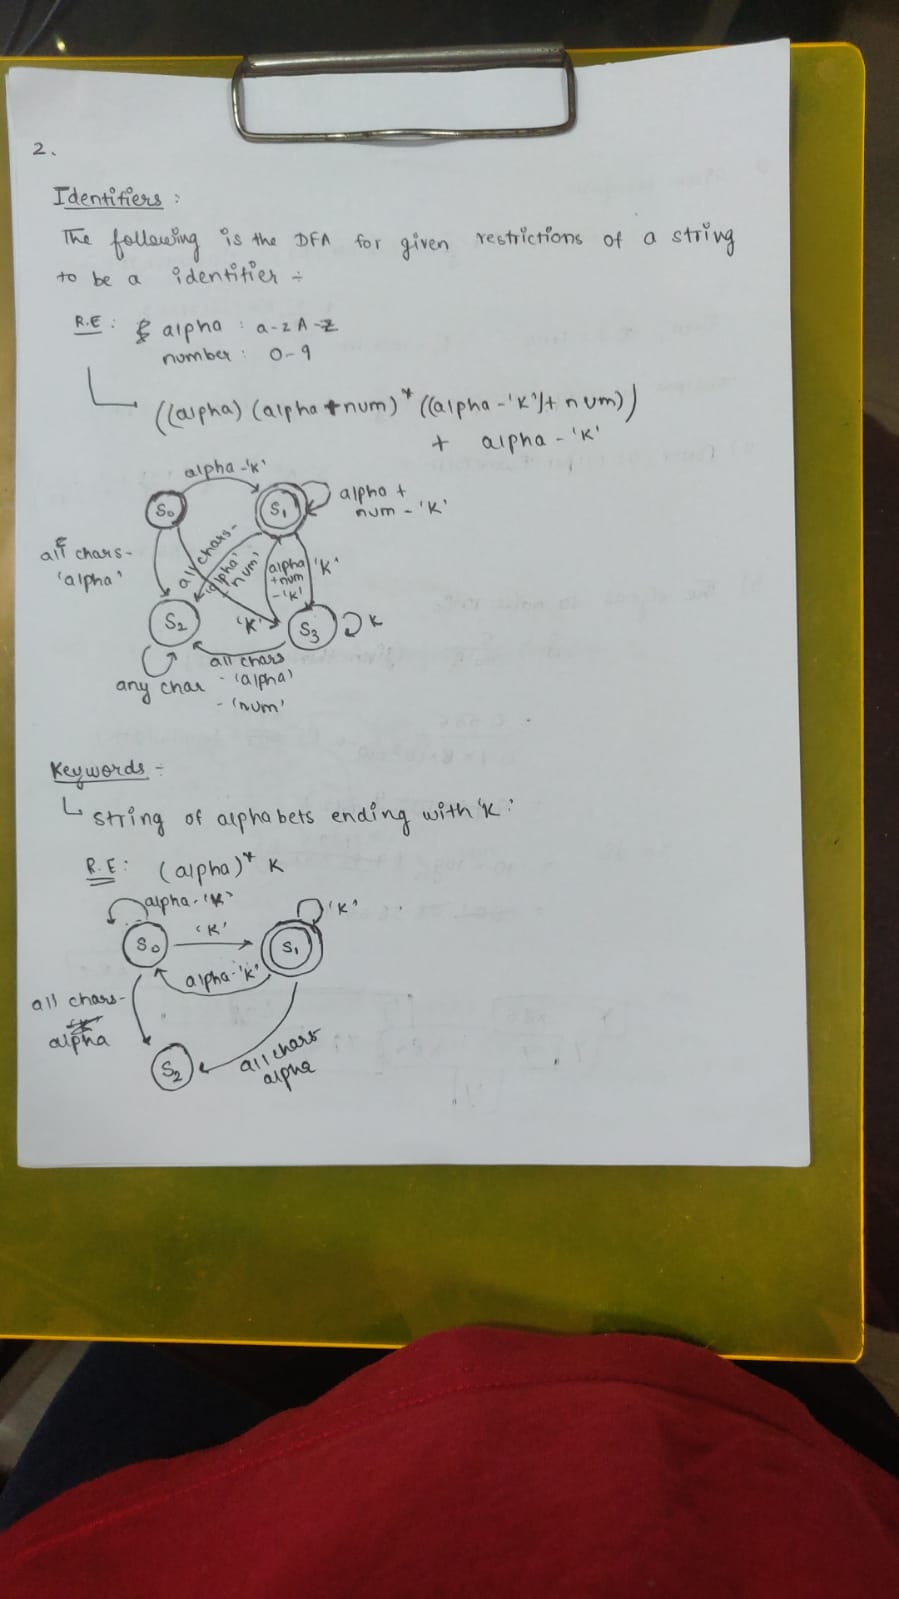 2.
Identifiers :
The following is the DFA for given restrictions of a string
to be a identifier ÷
R.E : alpha : a-z A-Z
number : 0-9
((alpha) (alpha + num)* ((alpha - 'K')+ num))
+ alpha - 'K'
alpha - 'K'
S0
S1
alpha +
num - 'K'
all chars -
'alpha'
all chars -
'alpha'
- 'num'
alpha
+ num
- 'K'
'K'
S2
'K'
S3
K
all chars
- 'alpha'
- 'num'
any char
Keywords -
string of alphabets ending with 'K'
R.E : (alpha)* K
alpha - 'K'
'K'
S0
'K'
S1
alpha - 'K'
all chars -
alpha
S2
all chars
alpha